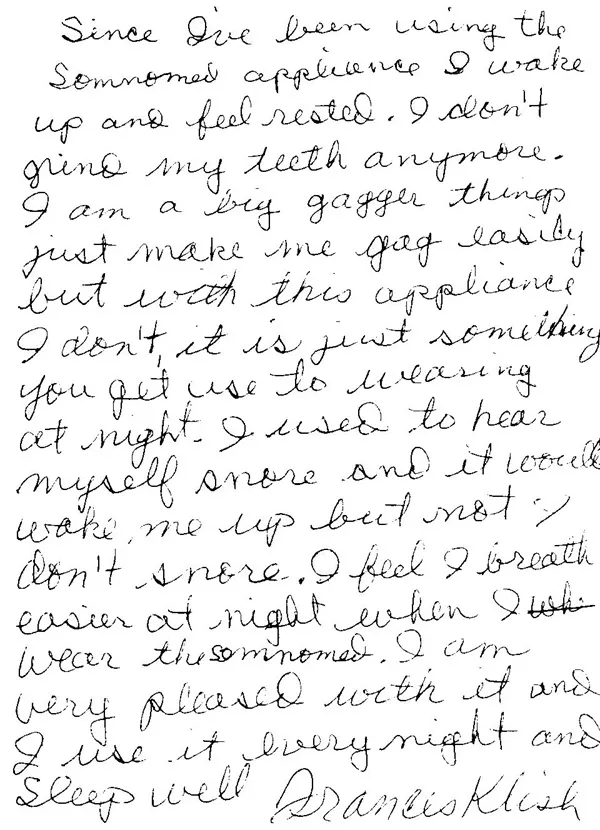 Since I've been using the
Somnomed appliance I wake
up and feel rested. I don't
grind my teeth anymore.
I am a big gagger things
just make me gag easily
but with this appliance
I don't, it is just something
you get use to wearing
at night. I used to hear
myself snore and it would
wake me up but not I
don't snore. I feel I breath
easier at night when I wh
wear the somnomed. I am
very pleased with it and
I use it every night and
sleep well Frances Klish